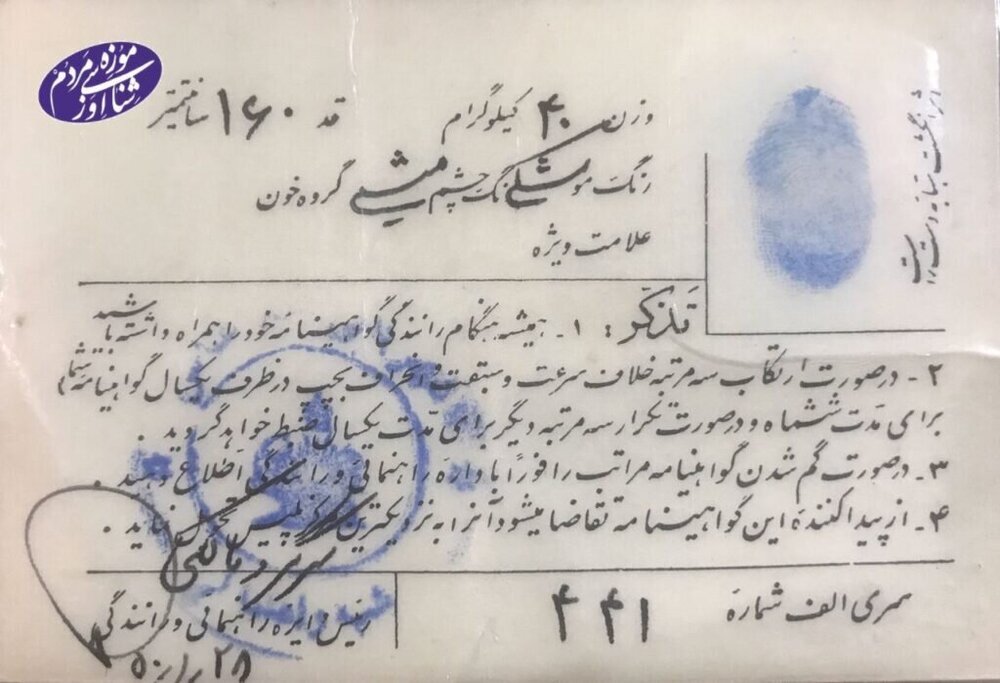 موزه مردم شناسی اوز
وزن ۴۰ کیلوگرام قد ۱۶۰ سانتیتر
رنگ مو مشکی رنگ چشم میشی گروه خون
علامت ویژه
اثر انگشت سبابه دست راست
تذکر : ۱- همیشه هنگام رانندگی گواهینامه خود را همراه داشته باشید
۲- در صورت ارتکاب سه مرتبه خلاف سرعت و سبقت و انحراف بچپ در ظرف یکسال گواهینامه شما
برای مدت ششماه و در صورت تکرار سه مرتبه دیگر برای مدت یکسال ضبط خواهد گردید .
۳- در صورت گم شدن گواهینامه مراتب را فوراً باداره راهنمائی و رانندگی اطلاع دهید .
۴- از پیدا کننده این گواهینامه تقاضا میشود آنرا به نزدیکترین مرکز پلیس تحویل نماید .
سری الف شماره ۴۴۱
رئیس دایره راهنمائی و رانندگی
۵۰/۱/۲۸